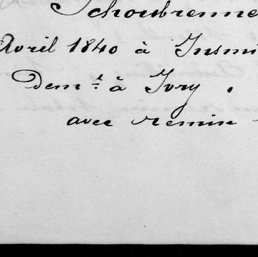 Schoubrenne
Avril 1840 à Insmi
dem.t à Ivry.
avec remin